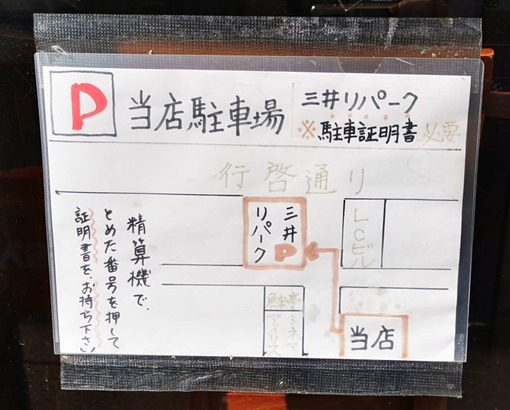 P 当店駐車場
三井リパーク
※駐車証明書必要
行啓通り
三井
リパーク
P
LCビル
精算機で、
とめた番号を押して
証明書を、お持ち下さい
シネマ
アイリス
当店